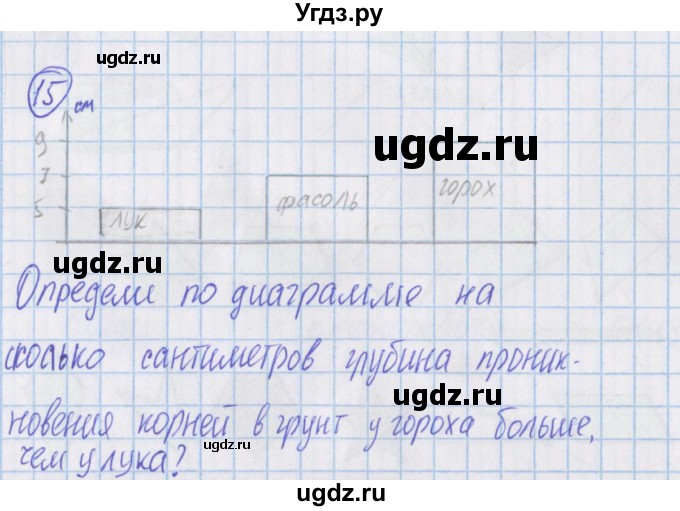 Угдз.ру
ugdz.ru
15
см
ugdz.ru
9
7
5
лук
фасоль
горох
ugdz.ru
ugdz.ru
Определи по диаграмме на
сколько сантиметров глубина проник-
ugdz.ru
новения корней в грунт у гороха больше,
ugdz.ru
чем у лука?
ugdz.ru